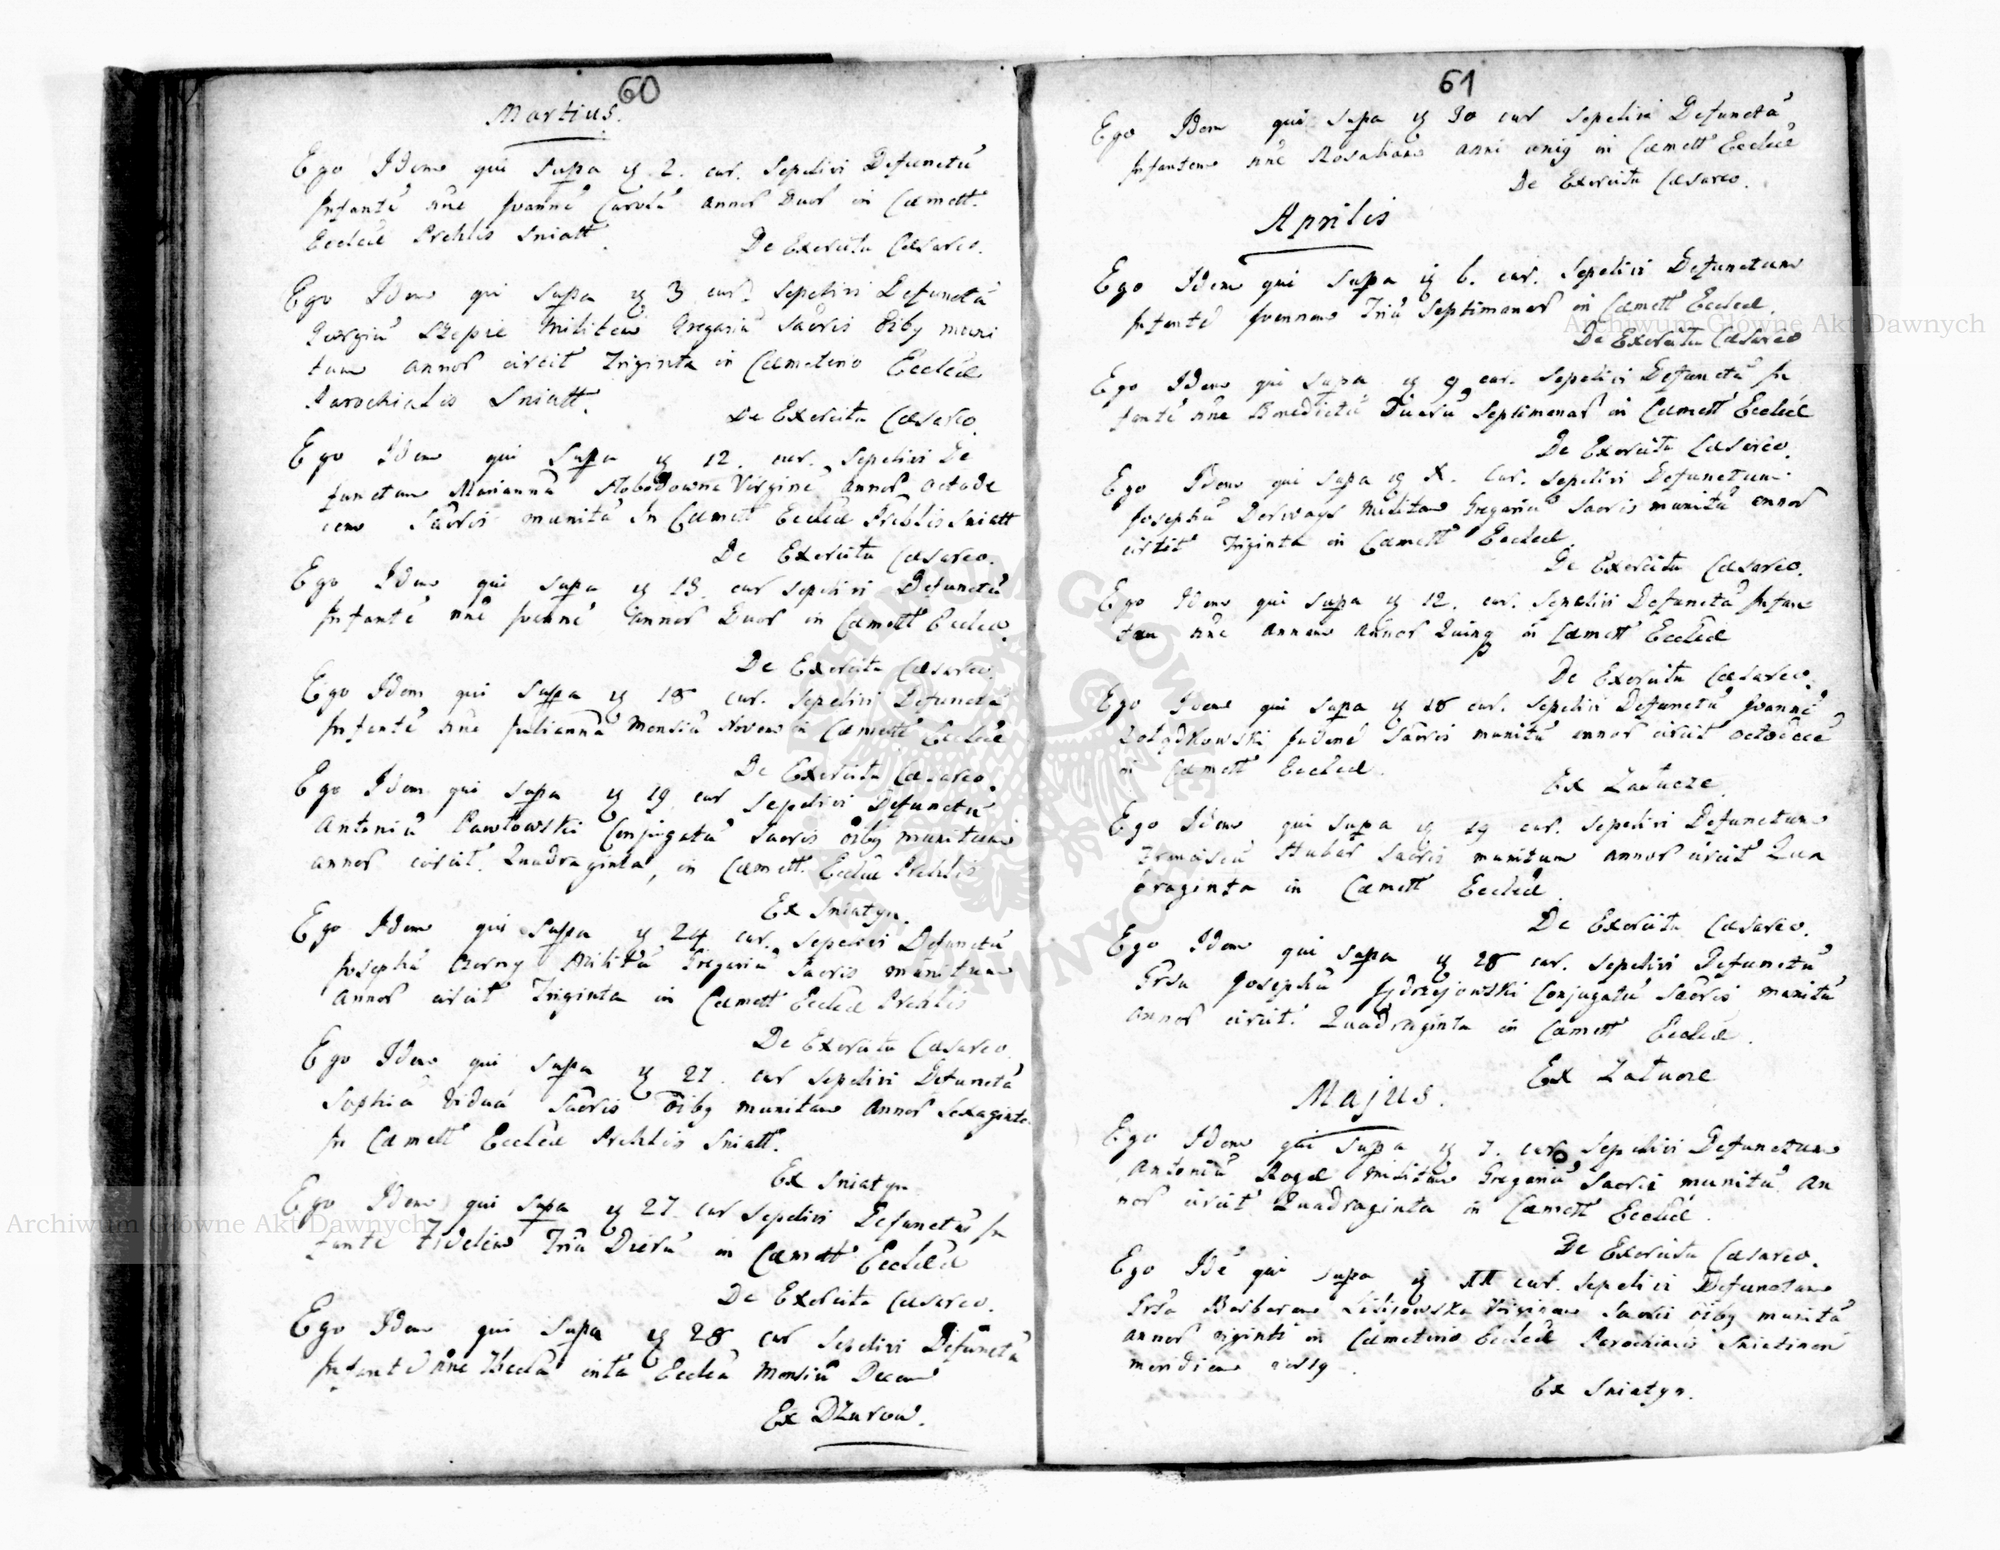 60
Martius.
Ego Idem qui supa 2. cur. Sepelivi Defunctū
Infantē nñe Joannē Carolū annor Duor in Cæmett.
Eccleæ Prchlis Sniatt.
De Exercitu Cæsareo.
Ego Idem qui supa 3 cur. Sepelivi Defunctū
Georgiū Szepie Militem Gregariū Sacris oibq muni
tum annor circit Triginta in Cæmeterio Eccleæ
Parochialis Sniatt.
De Exercitu Cæsareo.
Ego Idem qui supa 12. cur. Sepelivi De
functam Mariannā Slobodowna Virginē annor octode
cem Sacris munitā In Cæmett Eccleæ Prchlis Sniatt
De Exercitu Cæsareo.
Ego Idem qui supa 13. cur Sepelivi Defunctū
Infantē nñe Joannē Annor Duor in Cæmett Eccleæ.
De Exercitu Cæsareo.
Ego Idem qui supa 18 cur. Sepelivi Defunctā
Infantē nñe Juliannā Mensiū Novem in Cæmett Eccleæ
De Exercitu Cæsareo.
Ego Idem qui supa 19 cur Sepelivi Defunctū
Antoniū Pawłowski Conjugatū Sacris oibq munitum
annor circit. Quadraginta, in Cæmett. Eccleæ Prchlis
Ex Sniatyn.
Ego Idem qui supa 24 cur. Sepelivi Defunctū
Josephū Czerny Militē Gregariū Sacris munitum
Annor circit Triginta in Cæmett Eccleæ Prchlis
De Exercitu Cæsareo.
Ego Idem qui supa 27. cur Sepelivi Defunctā
Sophiā Viduā Sacris oibq munitam Annor Sexaginta
In Cæmett Eccleæ Prchlis Sniatt.
Ex Sniatyn
Ego Idem qui supa 27 cur Sepelivi Defunctū In
fantē Fidelem Triū Dierū in Cæmett Eccleæ
De Exercitu Cæsareo.
Ego Idem qui supa 28 cur Sepelivi Defunctā
Infantē nñe Theclā intā Eccleā Mensiū Decem
Ex Dżurow.
61
Ego Idem qui supa 30 cur Sepelivi Defunctā
Infantem nñe Rosaliam anni uniq in Cæmett Eccleæ
De Exercitu Cæsareo.
Aprilis
Ego Idem qui supa 6. cur. Sepelivi Defunctum
Infantē Joannem Triū Septimanar in Cæmett Eccleæ.
De Exercitu Cæsareo
Ego Idem qui supa 9 cur. Sepelivi Defunctū In
fantē nñe Benedictū Duarū Septimanar in Cæmett Eccleæ
De Exercitu Cæsareo.
Ego Idem qui supa X. Cur. Sepelivi Defunctum
Josephū Derways Militem Gregariū Sacris munitū annor
circit Triginta in Cæmett Eccleæ.
De Exercitu Cæsareo.
Ego Idem qui supa 12. cur. Sepelivi Defunctā Infan
tem nñe Annam Annor Quinq in Cæmett Eccleæ
De Exercitu Cæsareo.
Ego Idem qui supa 18 cur. Sepelivi Defunctū Joannē
Sacris munitū annor circit octodecē
in Cæmett Eccleæ.
Ex Załucze.
Ego Idem qui supa 19 cur. Sepelivi Defunctum
Franciscū Hubar Sacris munitum annor circit Qua
draginta in Cæmett Eccleæ.
De Exercitu Cæsareo.
Ego Idem qui supa 28 cur. Sepelivi Defunctū
Grsu Josephū Jędrzejowski Conjugatū Sacris munitū
Annor circit. Quadraginta in Cæmett Eccleæ.
Ex Załucze
Majus.
Ego Idem qui supa 7. cur Sepelivi Defunctum
Antoniū Militem Gregariū Sacris munitū An
nor circit Quadraginta in Cæmett Eccleæ.
De Exercitu Cæsareo.
Ego Idē qui supa II cur. Sepelivi Defunctam
Grsā Barbaram Virginem Sacris oibq munitā
annor viginti in Cæmeterio Eccleæ Parochialis
Ex Sniatyn.
Archiwum Główne Akt Dawnych
Archiwum Główne Akt Dawnych
ARCHIWUM GŁÓWNE AKT DAWNYCH